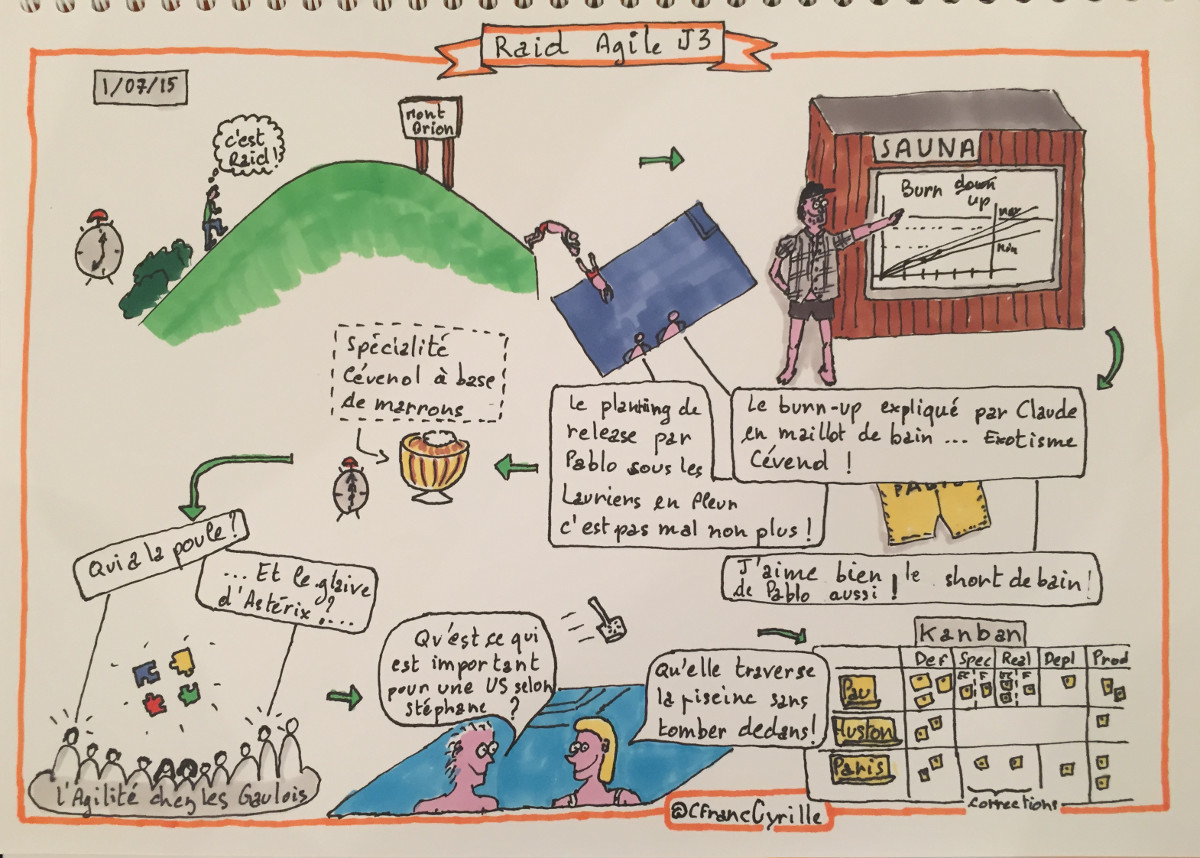 Raid Agile J3
1/07/15
c'est
Raid !
Mont
Orion
SAUNA
Burn down
up
max
Min
Spécialité
Cévenol à base
de marrons
Le planning de
release par
Pablo sous les
Lauriers en fleur
c'est pas mal non plus !
Le burn-up expliqué par Claude
en maillot de bain ... Exotisme
Cévenol !
PABLO
J'aime bien le short de bain
de Pablo aussi !
Qui a la poule ?
... Et le glaive
d'Astérix ? ...
l'Agilité chez les Gaulois
Qu'est ce qui
est important
pour une US selon
stéphane ?
Qu'elle traverse
la piscine sans
tomber dedans !
Kanban
Def Spec Real Depl Prod
EC F EC F
Pau
Huston
Paris
Corrections
@CfrancCyrille